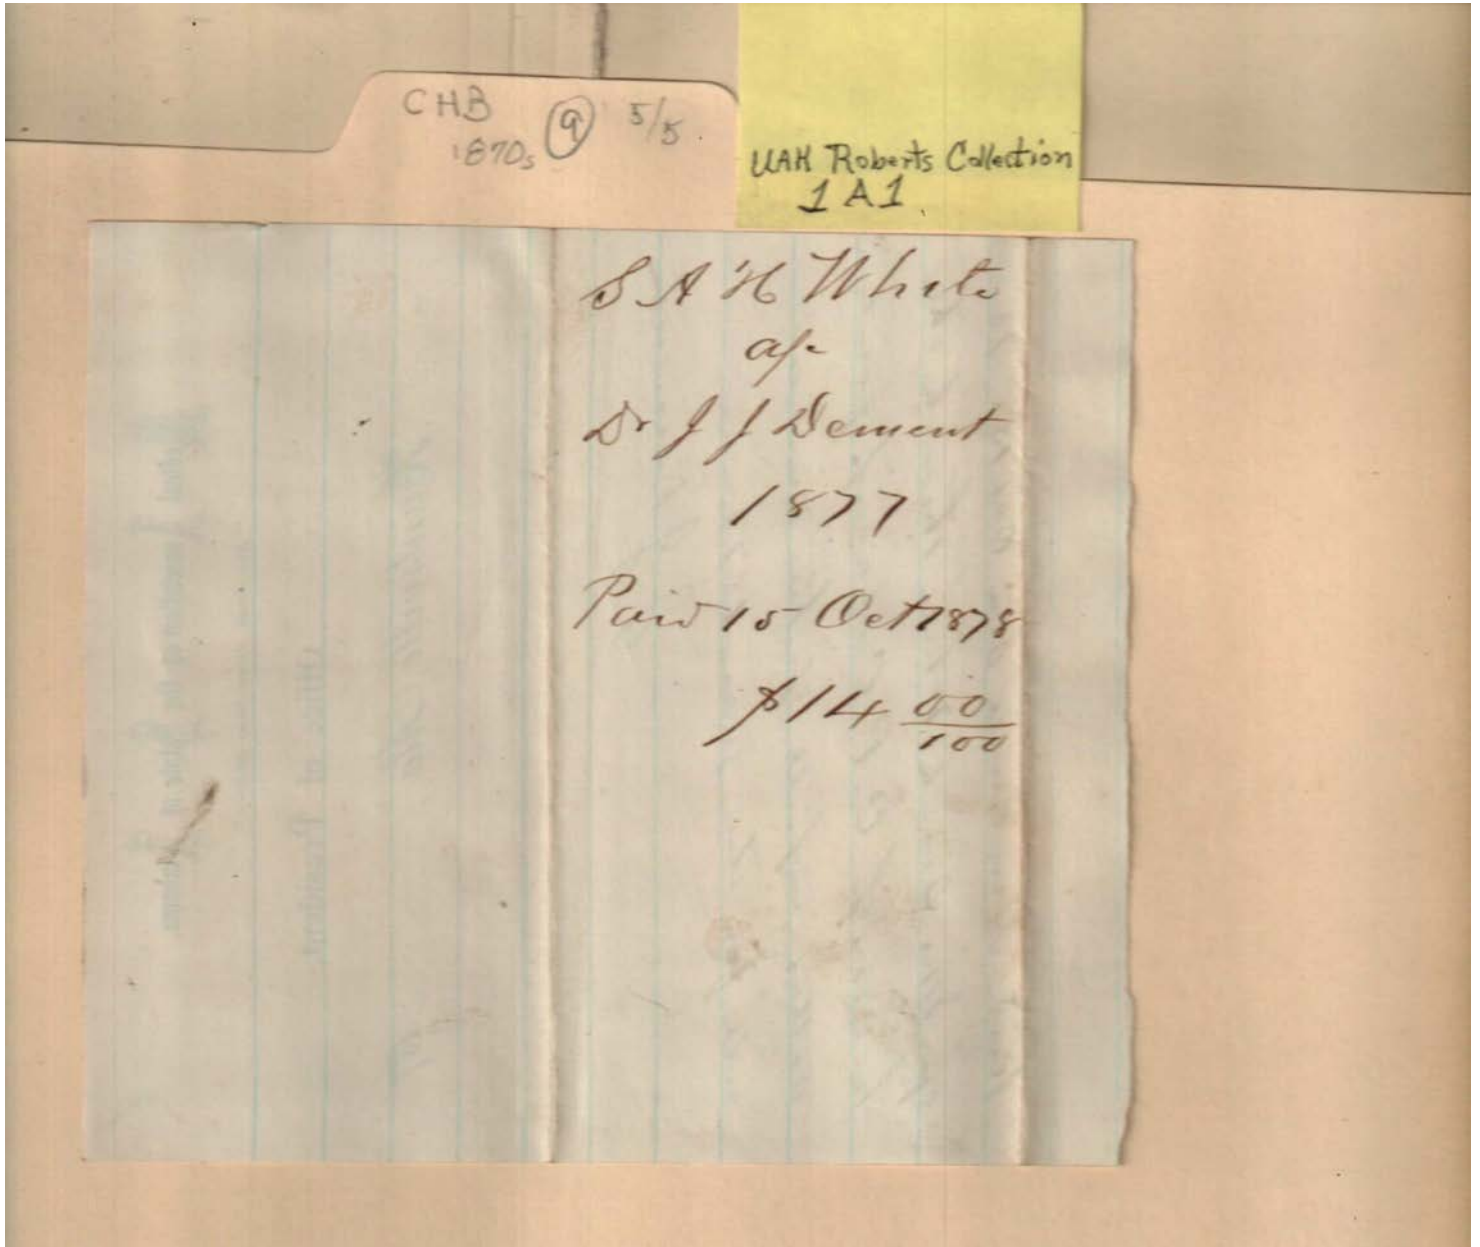 CHB
1870s
9
5/5.
UAH Roberts Collection
1A1.
S A H White
a/c
Dr J J Dement
1877
Paid 15 Oct 1878
$14 00/100